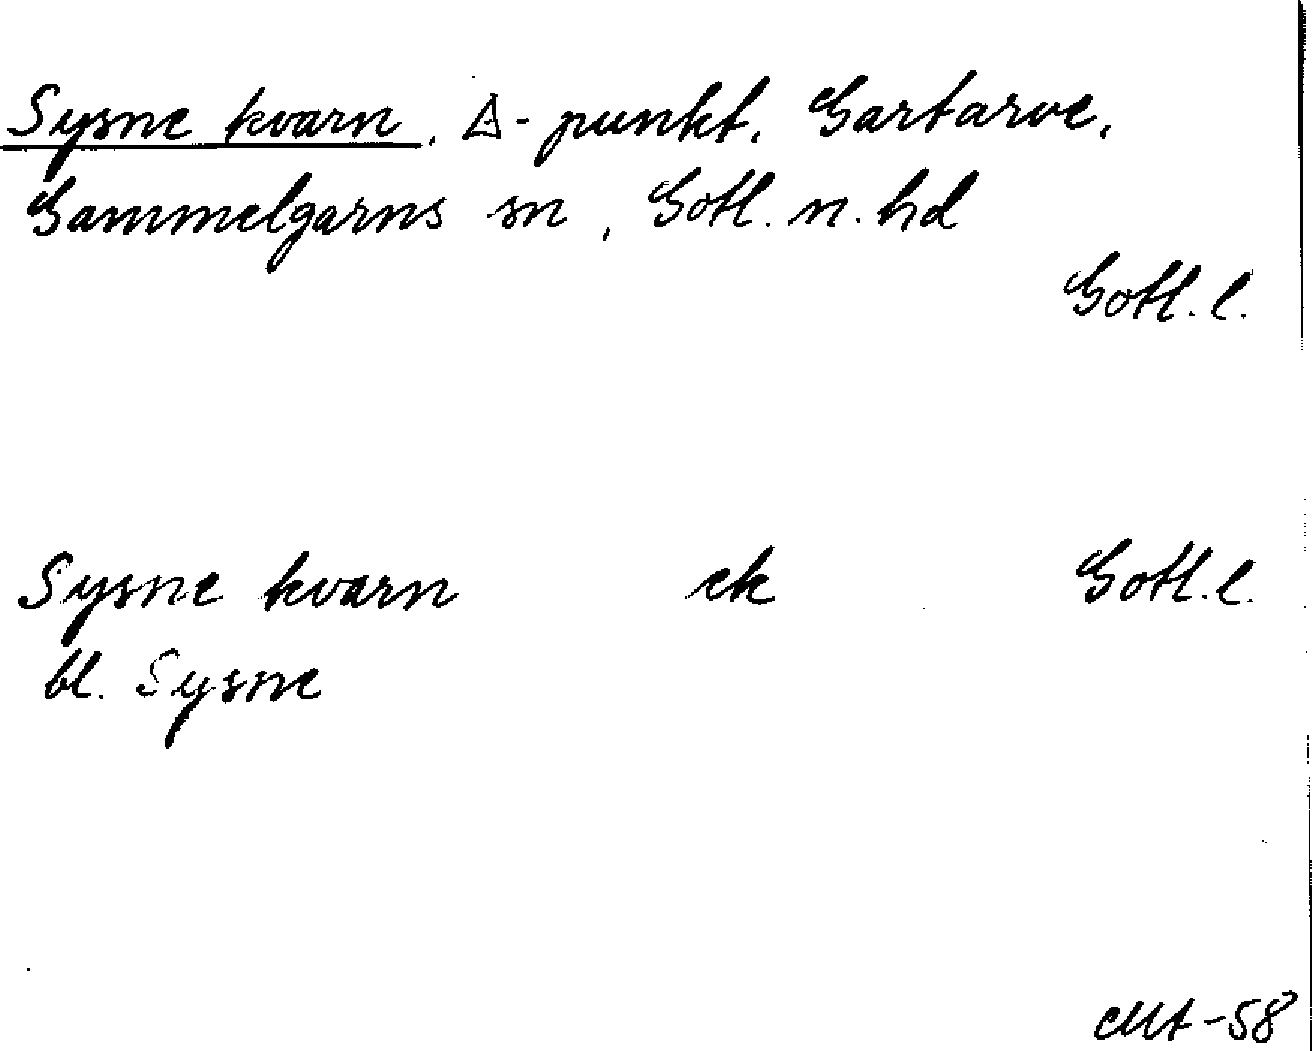 Sysne kvarn, Δ-punkt, Gartarve,
Gammelgarns sn, Gotl. n. hd
Gotl. l.
Sysne kvarn ek Gotl. l.
bl. Sysne
-58